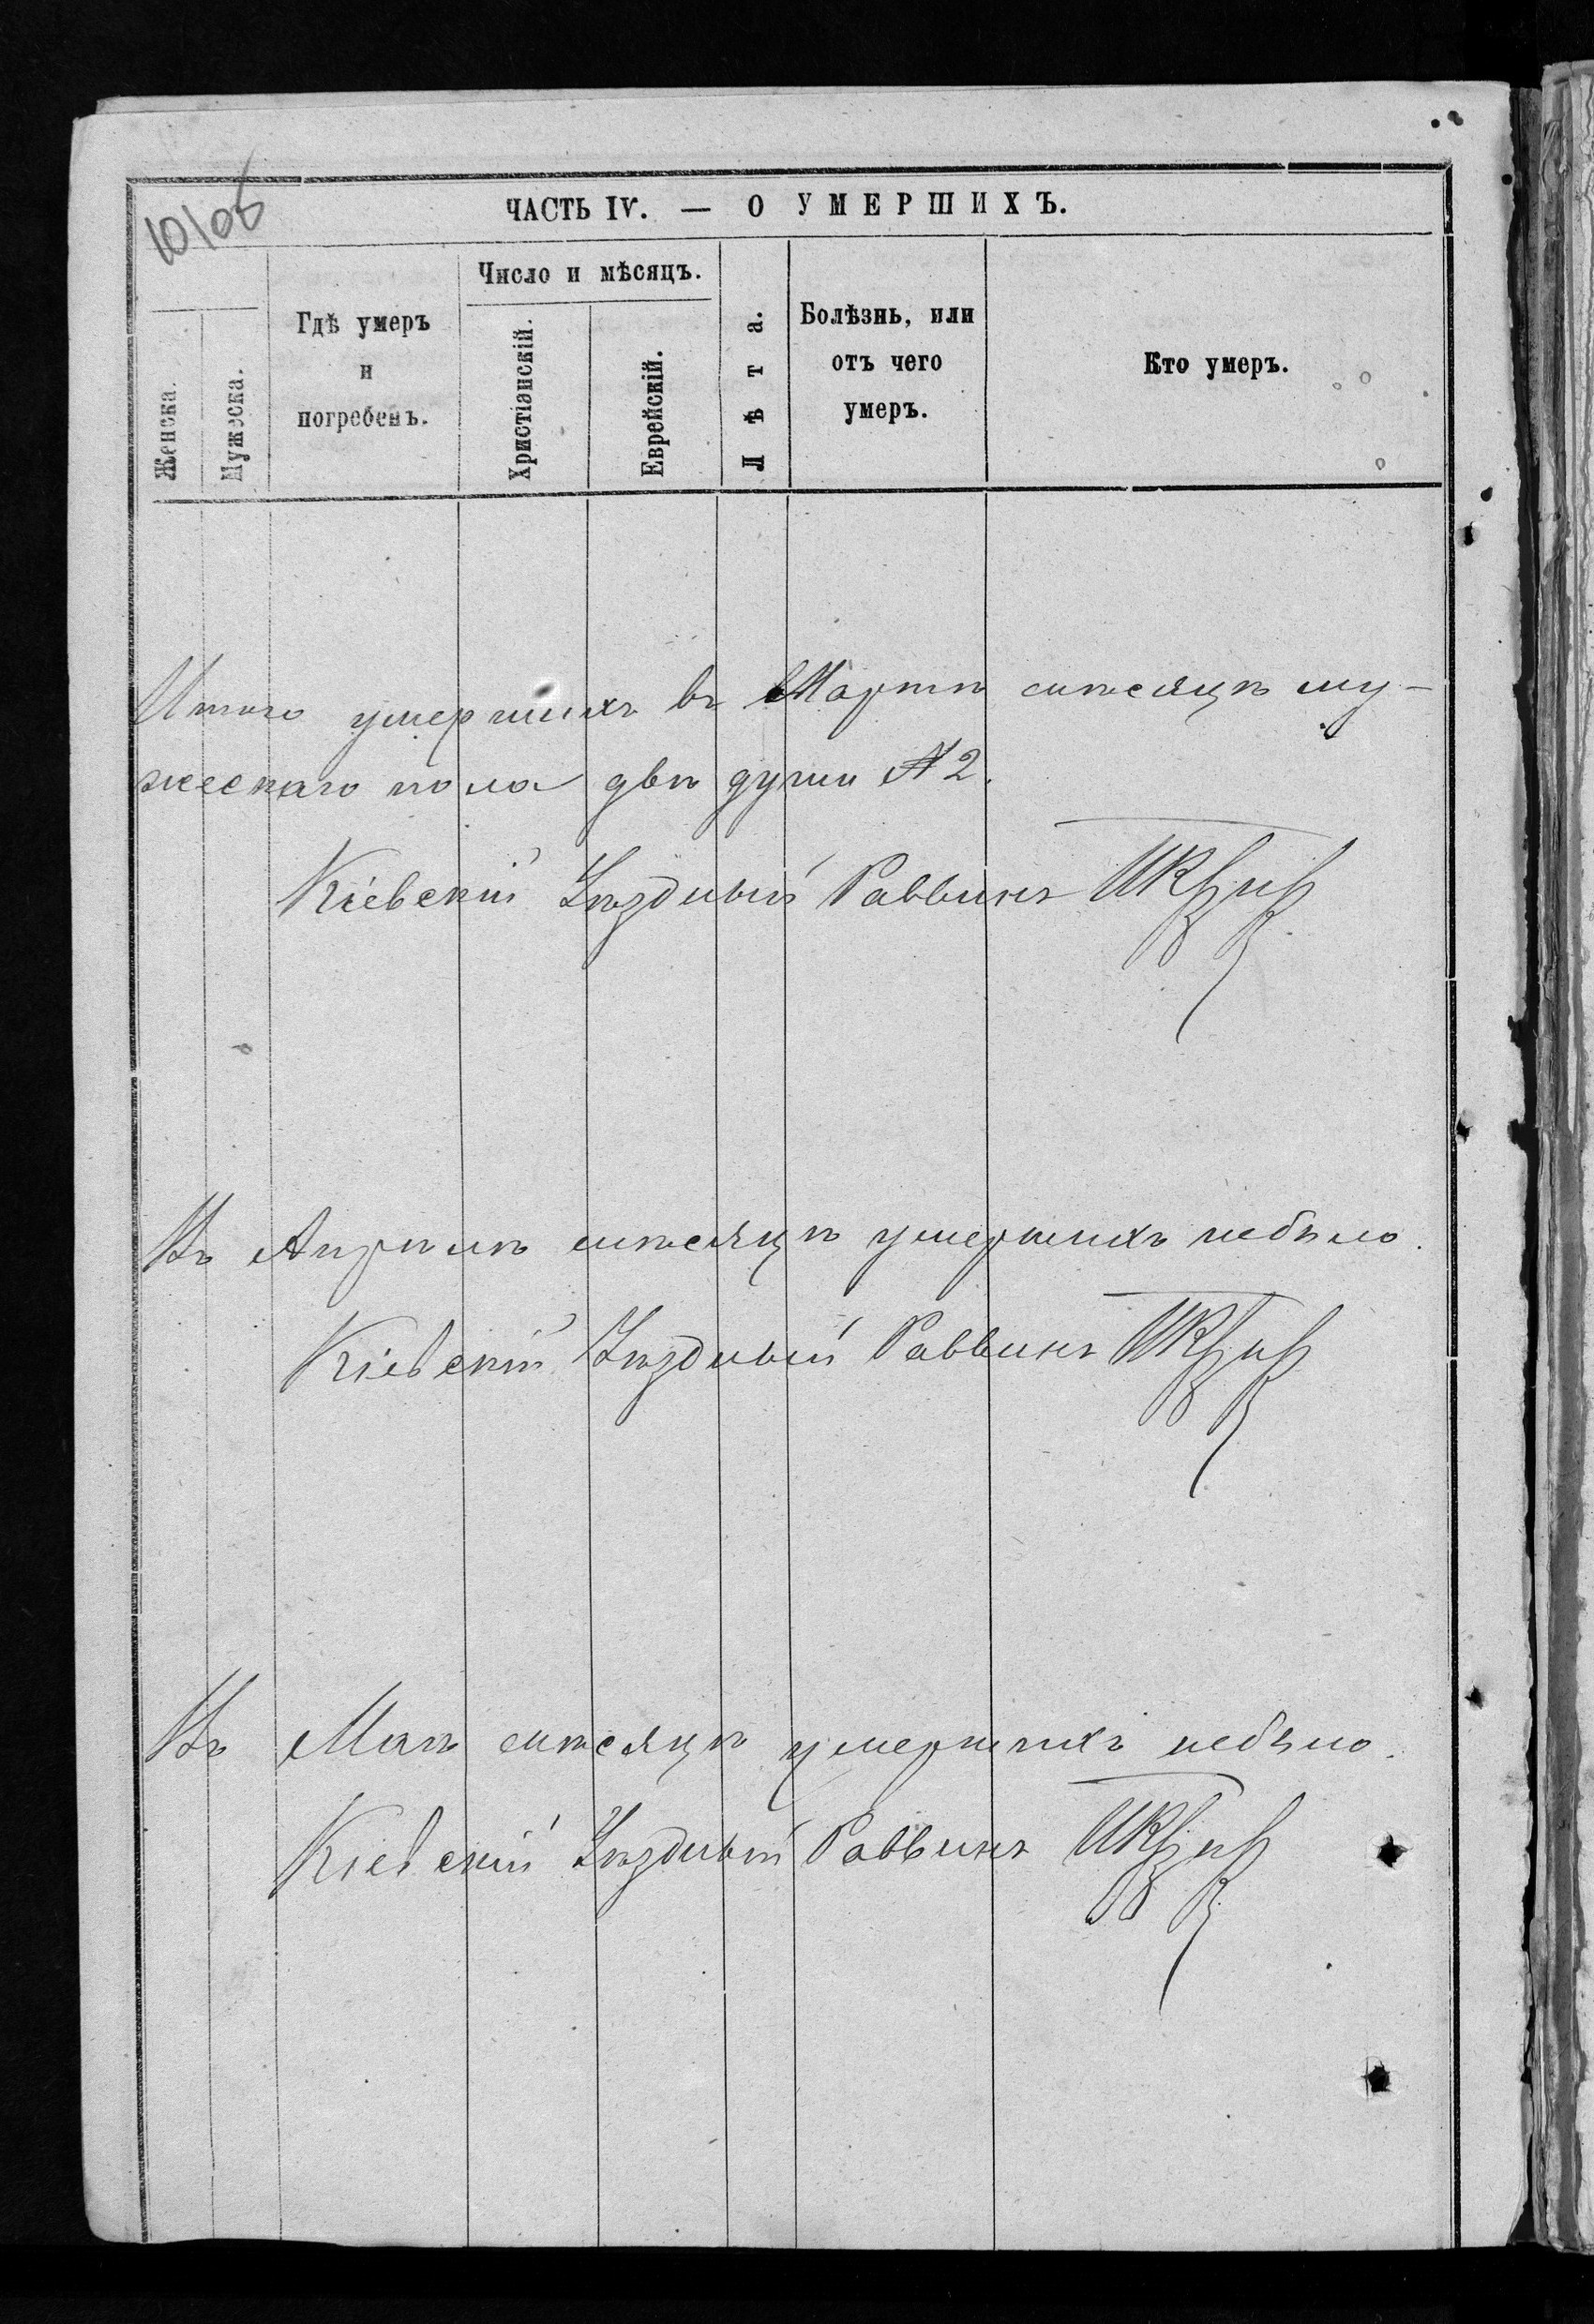 10/об
ЧАСТЬ IV. — О УМЕРШИХЪ.
Женска.
Мужеска.
Гдѣ умеръ
и
погребенъ.
Число и мѣсяцъ.
Христіянскій.
Еврейскій.
Лѣта.
Болѣзнь, или
отъ чего
умеръ.
Кто умеръ.
Итого умершихъ въ Мартѣ мѣсяцѣ му-
жескаго пола двѣ души № 2.
Кіевскій Уѣздный Раввинъ
Въ Апрѣлѣ мѣсяцѣ умершихъ небыло.
Кіевскій Уѣздный Раввинъ
Въ Маѣ мѣсяцѣ умершихъ небыло.
Кіевскій Уѣздный Раввинъ